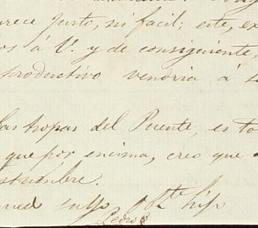 arece justo, ni facil; este, ex
os á V. y de consiguiente,
productivo vendria á
las tropas del Puente, es to
que por enima, creo que
stumbre.
Pedro